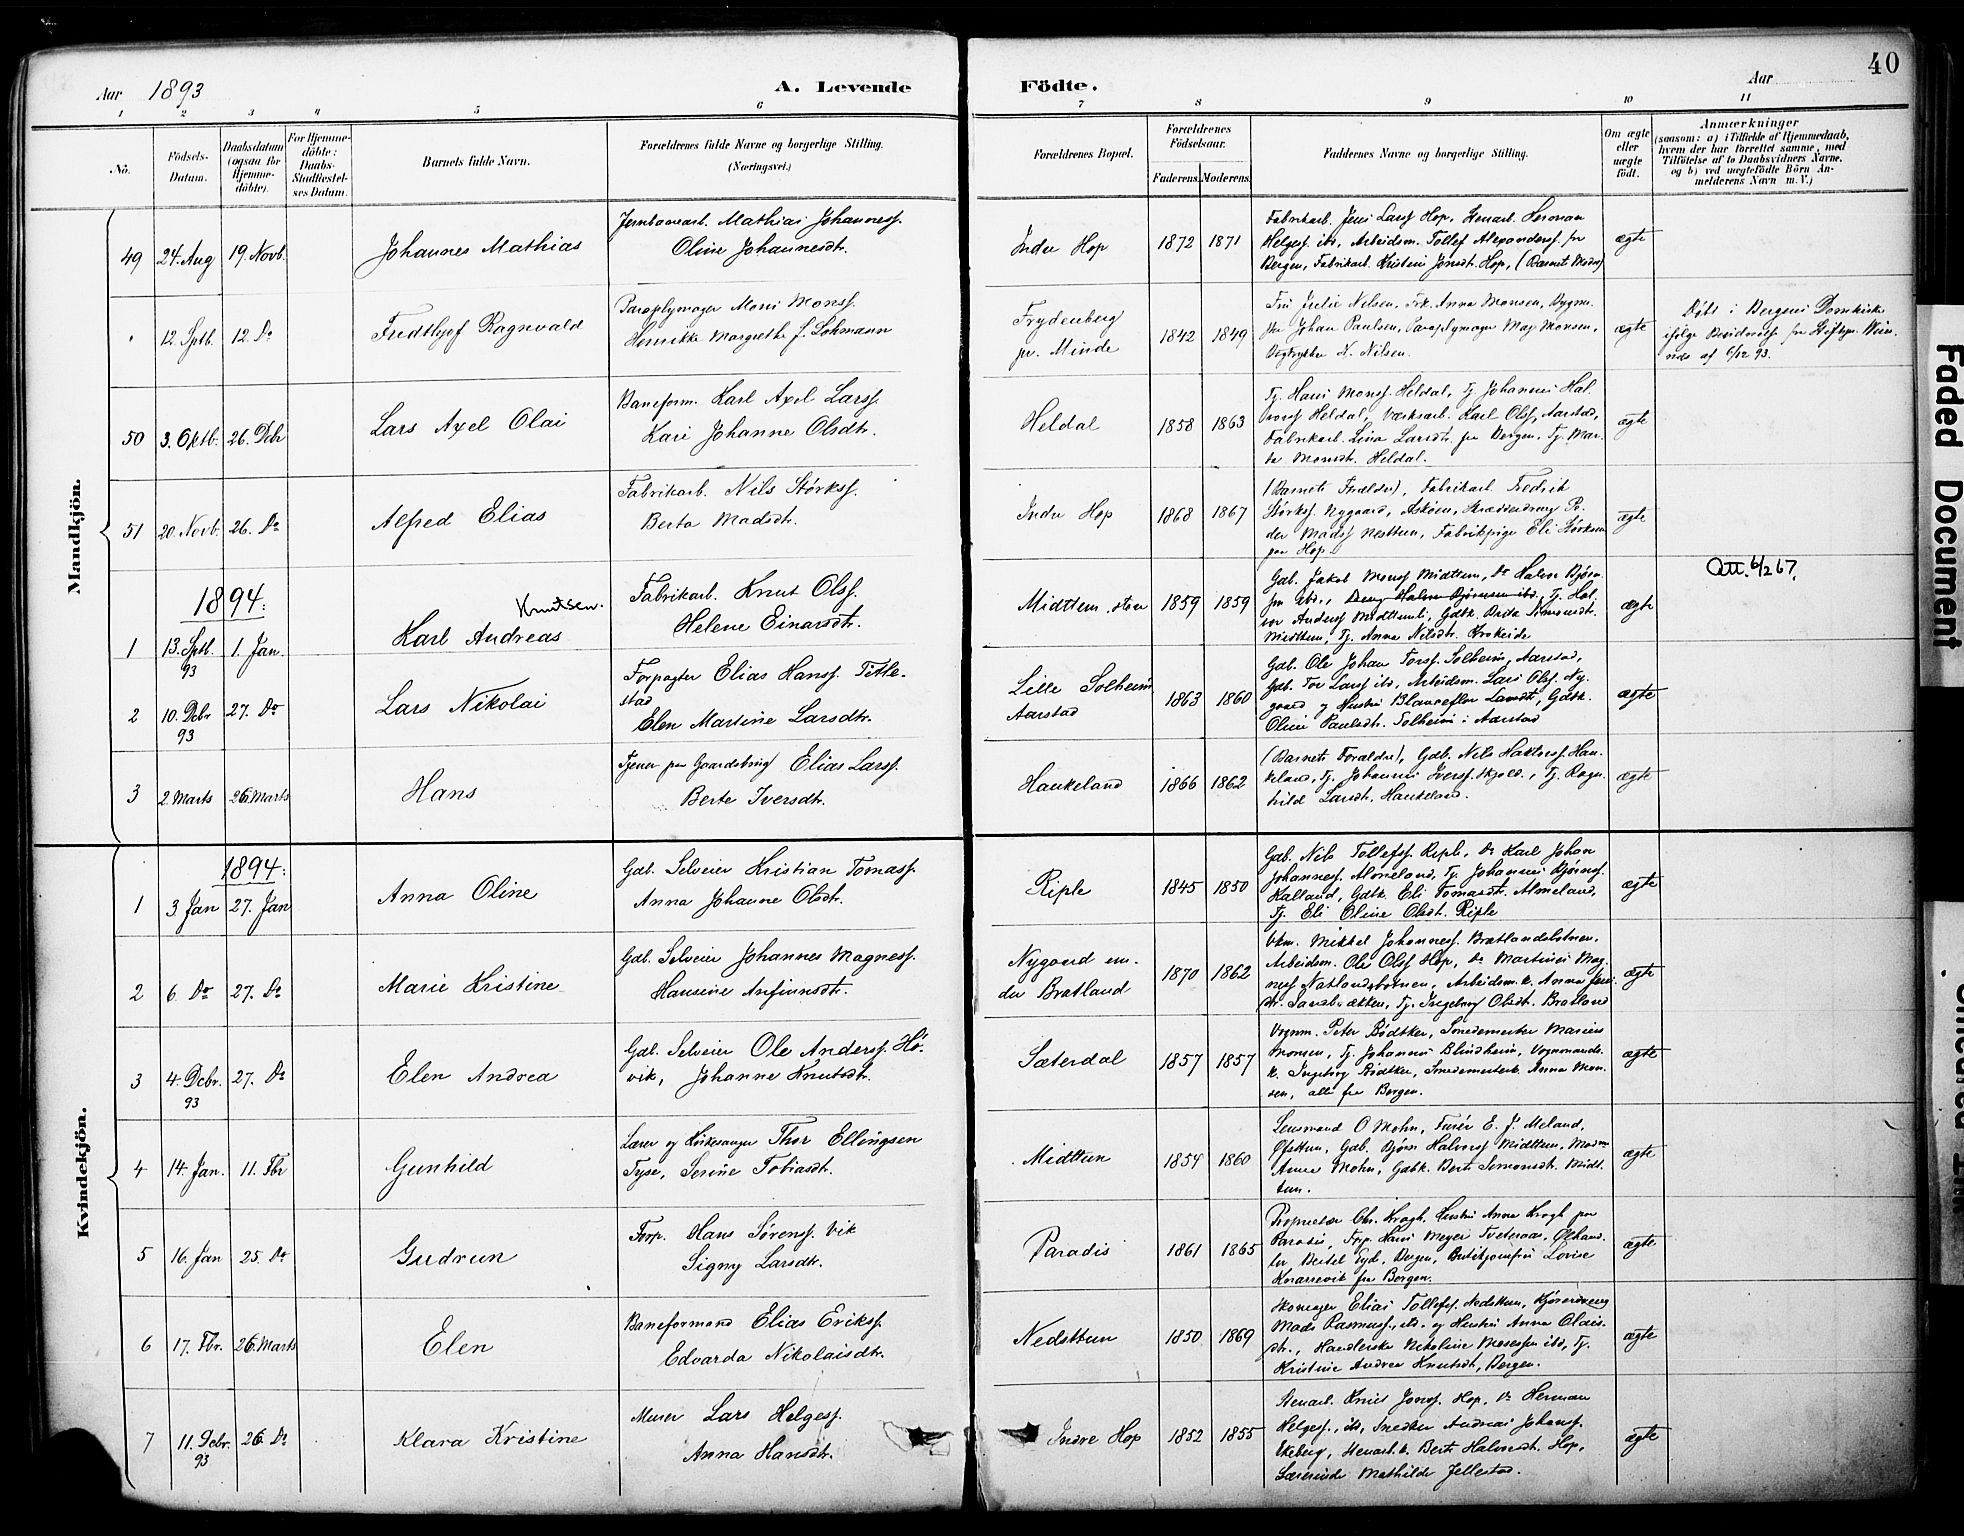 40
Aar 1893
A. Levende
Födte.
Aar
1 2 3 4 5 6 7 8 9 10 11
No.
Födsels-Datum.
Daabsdatum (ogsaa for Hjemme-döbte).
For Hjemme-döbte: Daabs-Stadfæstel-ses Datum.
Barnets fulde Navn.
Forældrenes fulde Navne og borgerlige Stilling. (Næringsvei.)
Forældrenes Bopæl.
Forældrenes Födselsaar.
Faderens. Moderens.
Faddernes Navne og borgerlige Stilling.
Om ægte eller uægte født.
Anmærkninger
(saasom: a) i Tilfælde af Hjemmedaab, hvem der har forrettet samme, med Tilföielse af to Daabsvidners Navne, og b) ved uægtefödte Börn An-melderens Navn m. V.)
Mandkjön.
49 24. Aug 19. Novb. Johannes Mathias
Jernbanearb. Mathias Johanness.
Oline Johannesdt.
Indre Hop 1872 1871
Fabrikarb. Jens Larss Hop, Stenarb. Herman
Helges. ibd, Arbeidsm. Tollef Alexanders. fra
Bergen, Fabrikarb. Kristin Jonsdt. Hop, (Barnets Moder)
ægte
" 12. Sptb. 12. Do Fredthjof Ragnvald
Paraplymager Mons Monss.
Henrikke Margrethe f. Lohmann
Frydenberg
pr. Minde
1842 1849
Fru Julie Nilsen, Frk. Anna Monsen, Bygm.
Johan Paulsen, Paraplymager Mag Monsen,
Bogtrykker N. Nilsen.
ægte
Døbt i Bergens Domkirke
ifølge
af 6/12 93.
50 3. Oktb. 26. Dcbr Lars Axel Olai
Baneform. Karl Axel Larss.
Kari Johanne Olsdt.
Heldal 1858 1863
Tj. Hans Monss. Heldal, Tj. Johannes Hal-
vorss Heldal, Værksarb. Karl Olss, Aarstad,
Fabrikarb. Lina Larsdt. fra Bergen, Tj. Mar-
ta Monsdt. Heldal.
ægte
51 20. Novb. 26. Do Alfred Elias
Fabrikarb. Nils Størkss.
Berta Madsdt.
Indre Hop 1868 1867
(Barnets Forældre), Fabrikarb. Fredrik
Størkss. Nygaard, Askøen, Skræddersvend Pe-
der Madss Nesttun, Fabrikpige Eli Størksen
paa Hop.
ægte
1894:
1 13. Sptb. 93 1. Jan. Karl Andreas Knutsen.
Fabrikarb. Knut Olss.
Helene Einarsdt.
Midttun store 1859 1859
Gdb. Jakob Monss Midttun, Do Halvor Bjørn-
sen ibd., Tj. Hal-
vor Anderss Midttun, Gdbk. Brita Simonsdt.
Midttun, Tj. Anna Nilsdt. Krokeide
ægte
Att. 6/2 67.
2 10. Dcbr 93 27. Do Lars Nikolai
Forpagter Elias Hanss. Title-
stad
Elen Martine Larsdtr.
Lille Solheim
Aarstad
1863 1860
Gdb. Ole Johan Torss. Solheim, Aarstad,
Gdb. Tor Larss ibd, Arbeidsm. Lars Olss. Ny-
gaard og Hustru Blanceflor Larsdt, Gdbk.
Oline Paulsdt. Solheim i Aarstad
ægte
3 2. Marts 26. Marts Hans
Tjener paa Gaardsbrug Elias Larss.
Berte Iversdtr.
Haukeland 1866 1862
(Barnets Forældre), Gdb. Nils Haktorss. Hau-
keland, Tj. Johannes Iverss. Skjold., Tj. Ragn-
hild Larsdt. Haukeland.
ægte
Kvindekjön.
1894:
1 3. Jan 27. Jan Anna Oline
Gdb. Selveier Kristian Tomass.
Anna Johanne Olsdt.
Riple 1845 1850
Gdb. Nils Tollefss. Riple, Do Karl Johan
Johanness. Almeland, Tj. Johannes Bjørnss.
Kalland, Gdbk. Eli Tomasdt. Almeland,
Tj. Eli Oline Olsdt. Riple
ægte
2 6. Do 27. Do Marie Kristine
Gdb. Selveier Johannes Magness.
Hansine Anfinnsdt.
Nygaard un-
der Bratland
1870 1862
Mikkel Johanness. Bratlandsbotnen,
Arbeidsm. Ole Olss Hop, Do Martinus Mag-
ness Natlandsbotnen, Arbeidsm. k. Anna Jens-
dt. Sandbrækken, Tj. Ingeborg Olsdt. Bratland
ægte
3 4. Dcbr. 93 27. Do Elen Andrea
Gdb. Selveier Ole Anderss. Hø-
vik, Johanne Knutsdt.
Sæterdal 1857 1857
Vognm. Peter Bødtker, Smedemester Marius
Monsen, Tj. Johannes Blindheim, Vognmands-
k. Ingeborg Bødtker, Smedemesterk. Anna Mon-
sen, alle fra Bergen.
ægte
4 14. Jan. 11. Fbr Gunhild
Lærer og Kirkesanger Thor Ellingsen
Tyse, Serine Tobiasdt.
Midttun 1854 1860
Lensmand O Mohn, Furér E. J. Meland,
Øfsttun, Gdb. Bjørn Halvorss Midttun, Madm
Anne Mohn, Gdbk. Berte Simonsdt. Midt-
tun.
ægte
5 16. Jan 25. Do Gudrun
Forp. Hans Sørenss. Vik
Signy Larsdtr.
Paradis 1861 1865
Proprietær Chr. Krogh, Hustru Anna Krogh paa
Paradis, Forp. Hans Meyer Tveteraas, Ølhand-
ler Bertel Eyd, Bergen, Butikjomfru Lovise
Knarrevik fra Bergen.
ægte
6 17. Fbr. 26. Marts Elen
Baneformand Elias Erikss.
Edvarda Nikolaisdtr.
Nedsttun 1850 1869
Skomager Elias Tollefss. Nedsttun, Kjøresvend
Mads Rasmuss., ibd. og Hustru Anna Olais-
dt., Handlerske Nikoline Mosessen ibd, Tj.
Kristine Andrea Knutsdt, Bergen.
ægte
7 11. Dcbr. 93 26. Do Klara Kristine
Murer Lars Helgess.
Anna Hansdtr.
Indre Hop 1852 1855
Stenarb. Knut Jonss. Hop, Do Herman
Helgess., ibd, Snedker Andreas Johanss.
Ekeberg, Stenarb. k. Berte Halvorsdt. Hop,
Lærerinde Mathilde Jellestad.
ægte
Faded Document